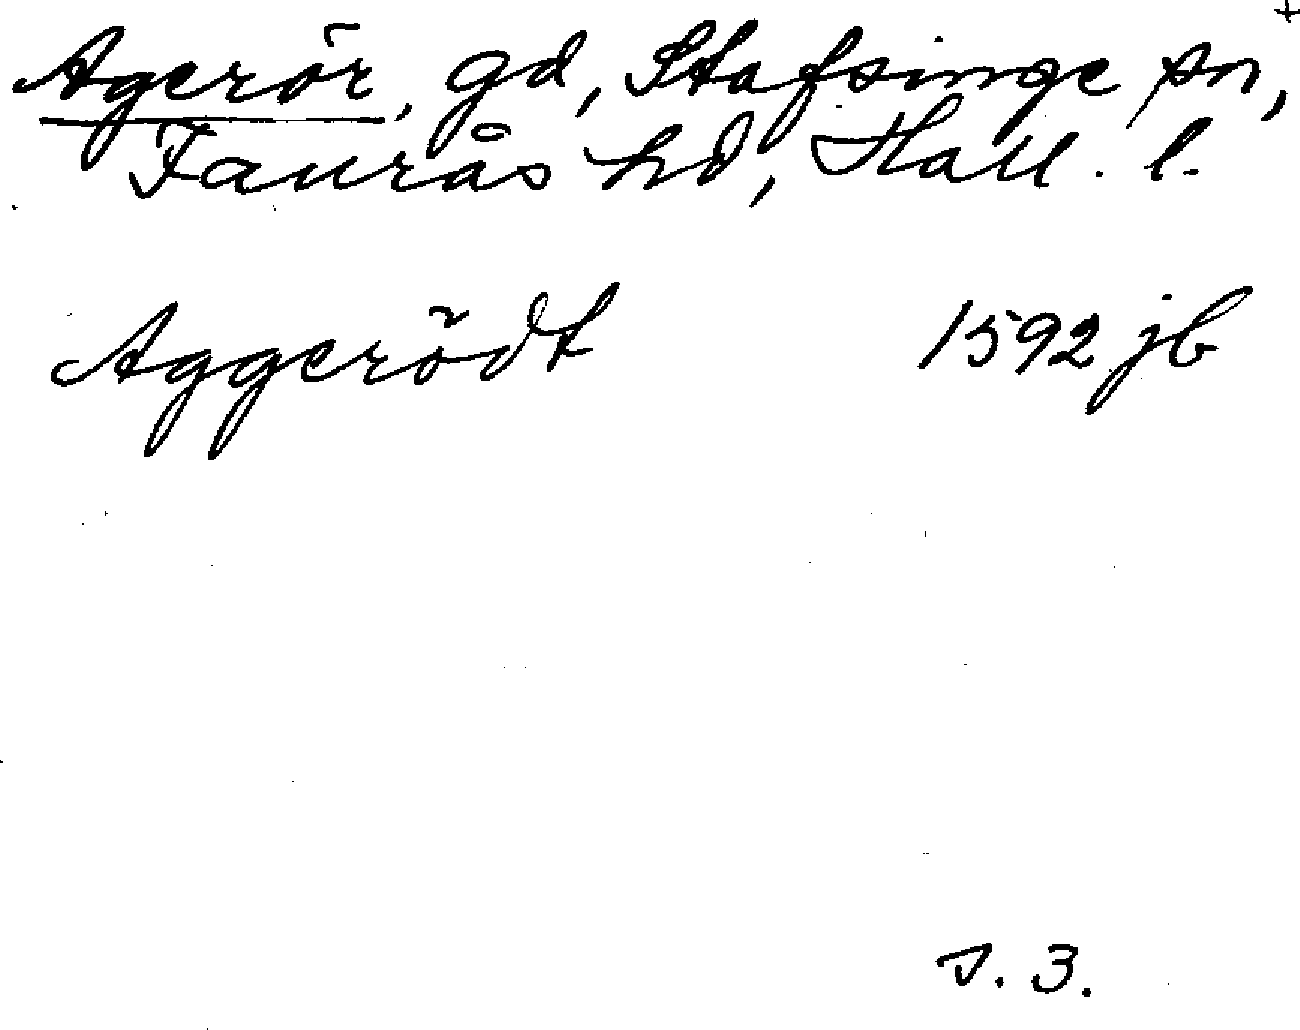 +
Agerör, gd, Stafsinge sn,
Faurås hd, Hall. l.
Aggerödt 1592 jb
s. 3.